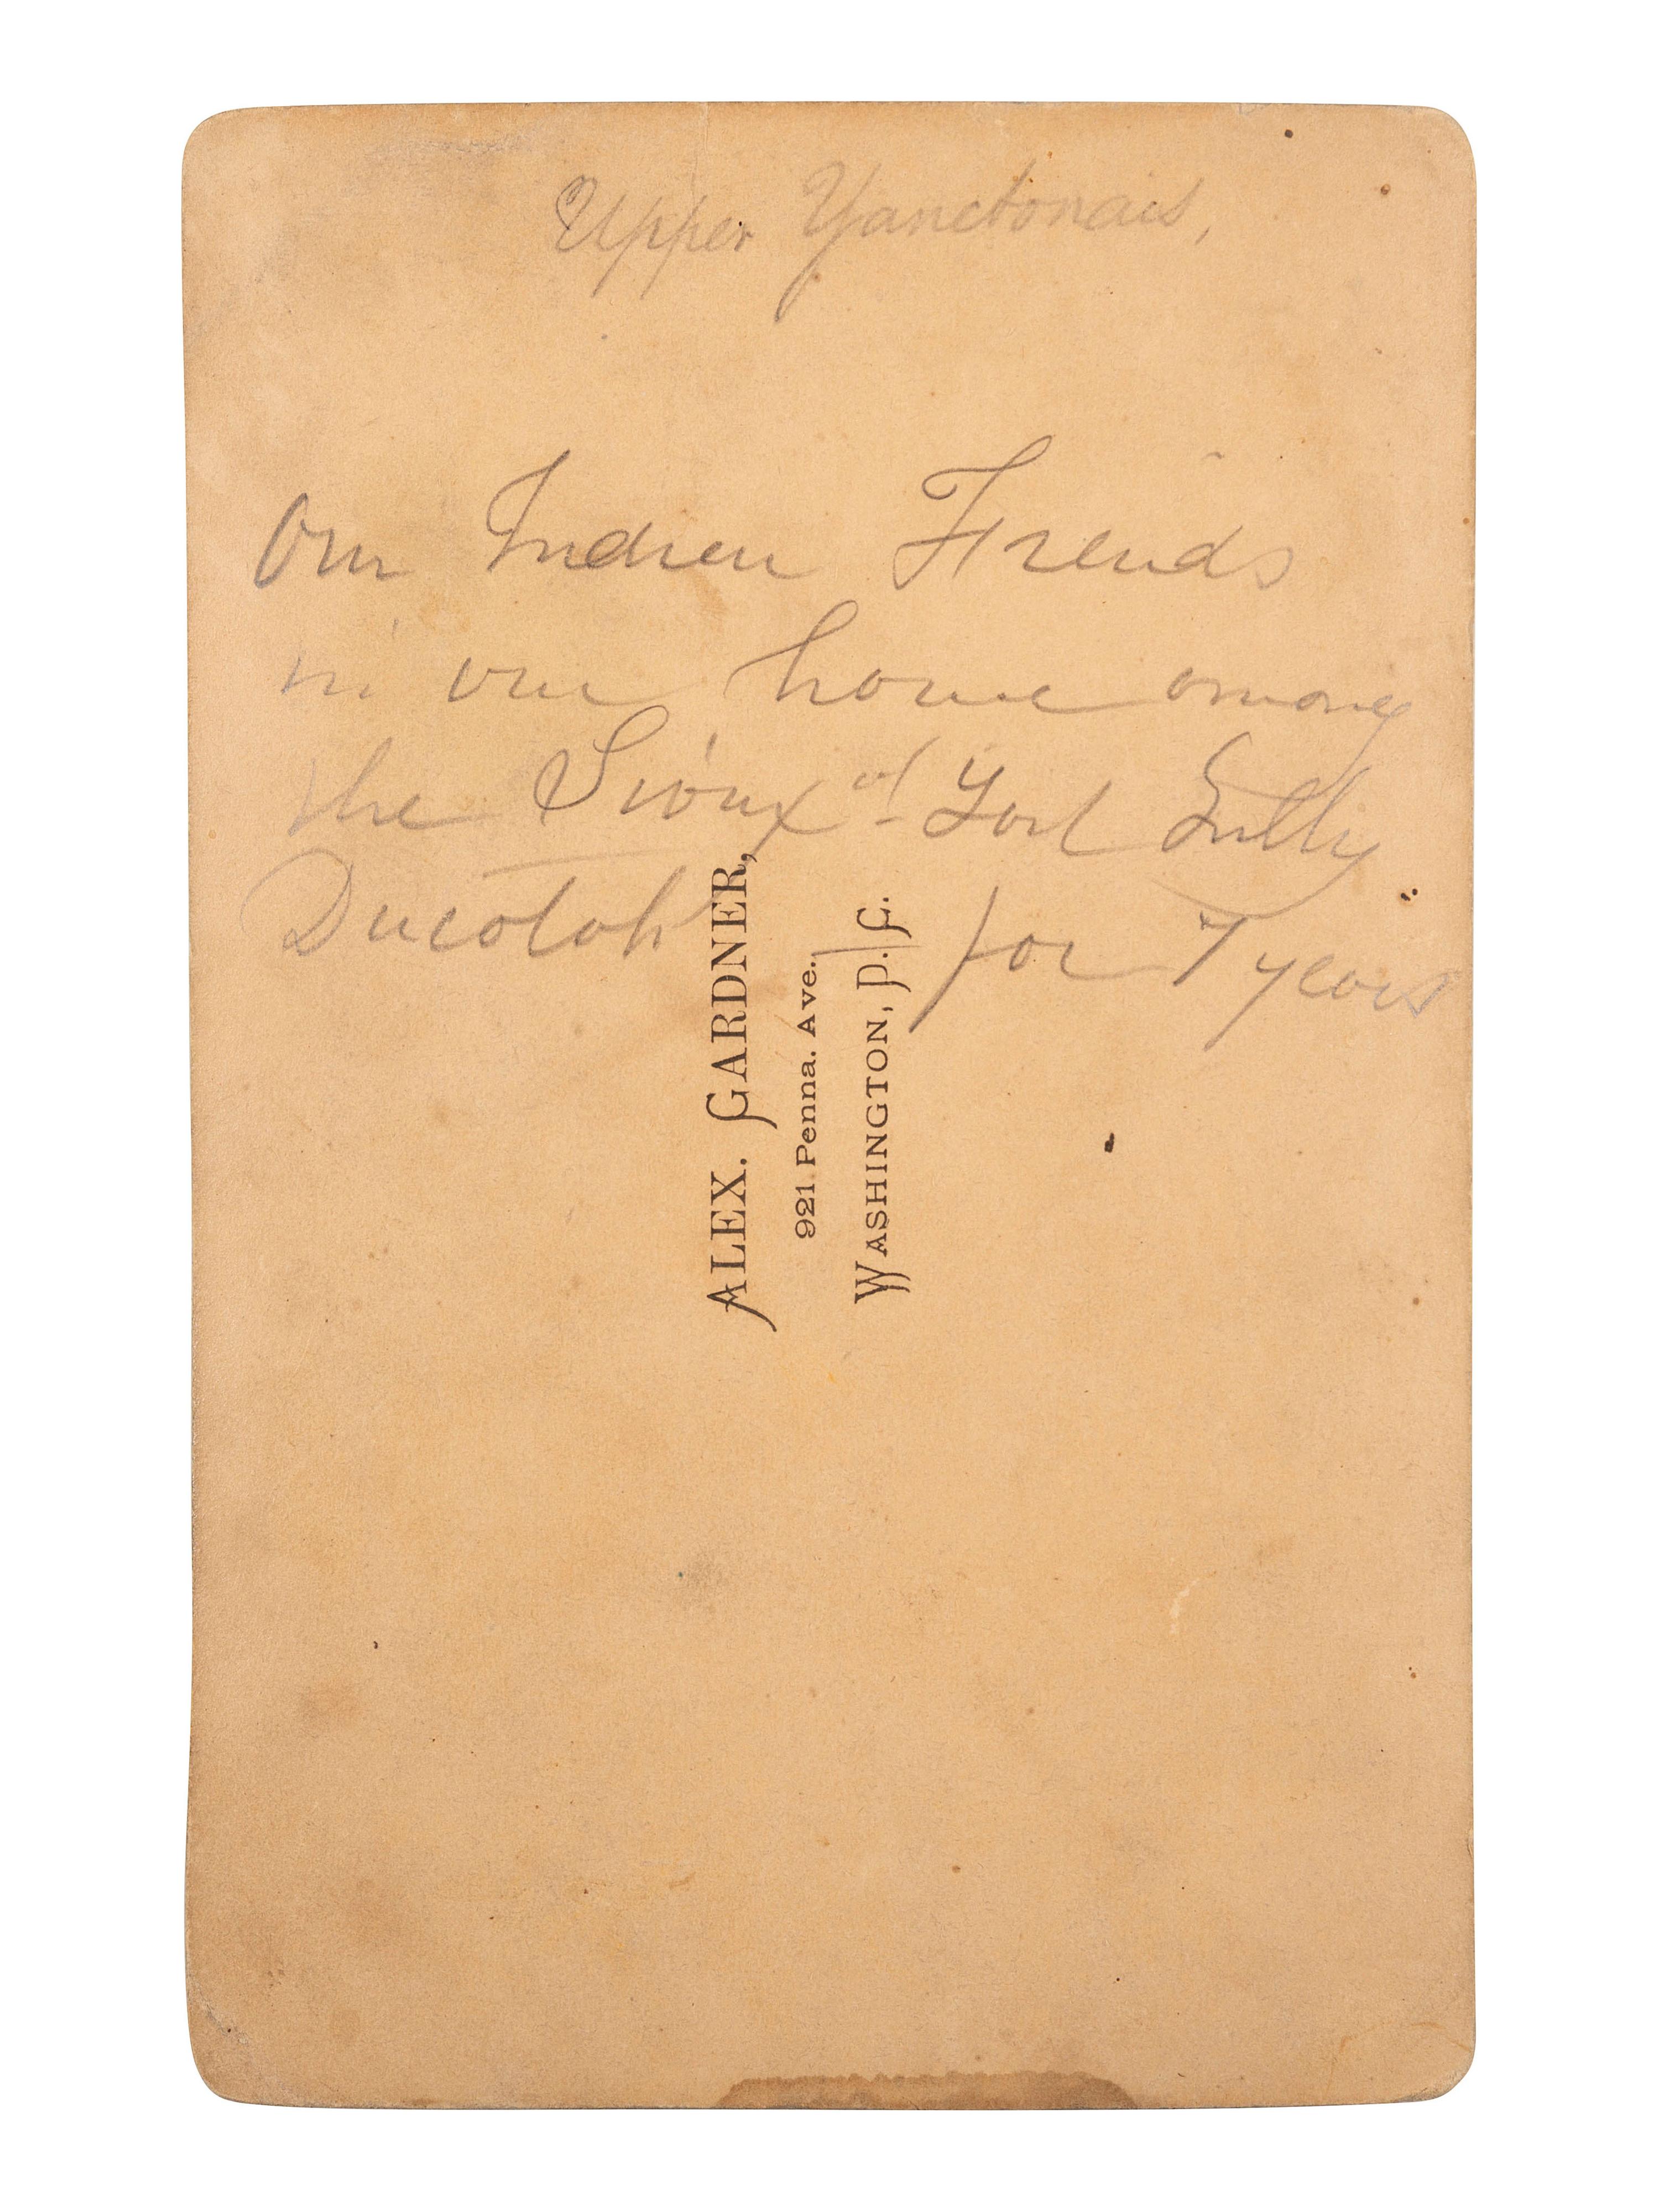 Upper Yanctonais,
Our Indien Friends
in our home among
the Sioux at Fort Sully
Ducotah for 7 years
ALEX. GARDNER,
921 Penna. Ave.
WASHINGTON, D. C.